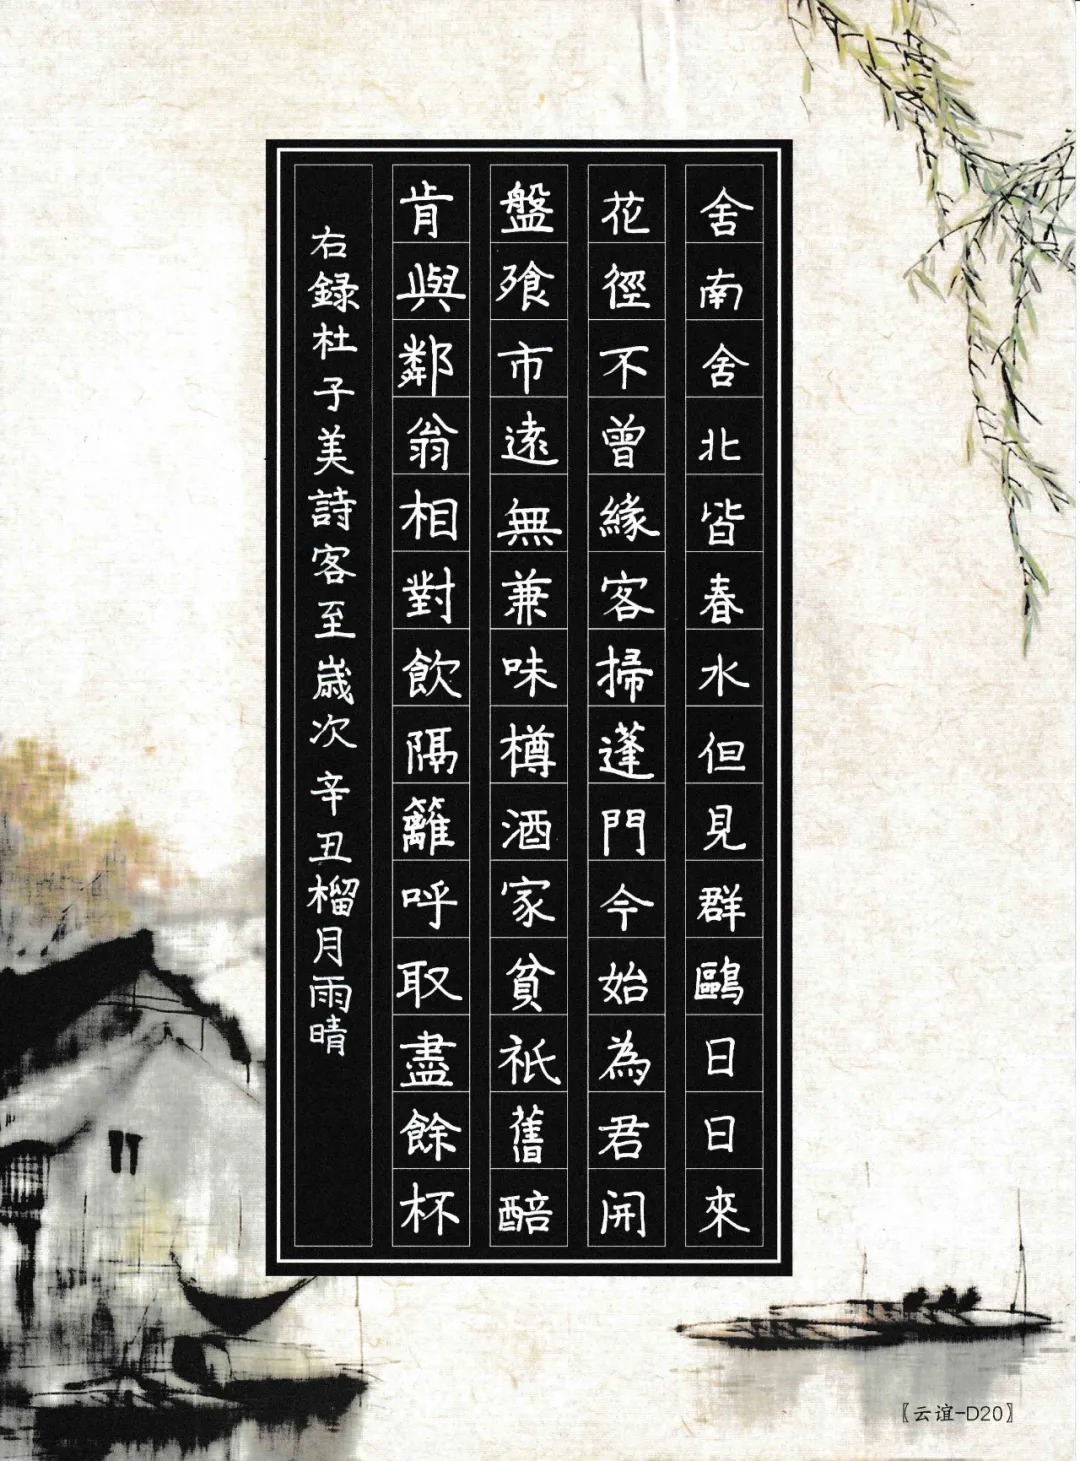 舍南舍北皆春水但見群鷗日日來
花徑不曾緣客掃蓬門今始為君開
盤飱市遠無兼味樽酒家貧祇舊醅
肯與鄰翁相對飲隔籬呼取盡餘杯
右録杜子美詩客至歳次辛丑榴月雨晴
〖云谊-D20〗